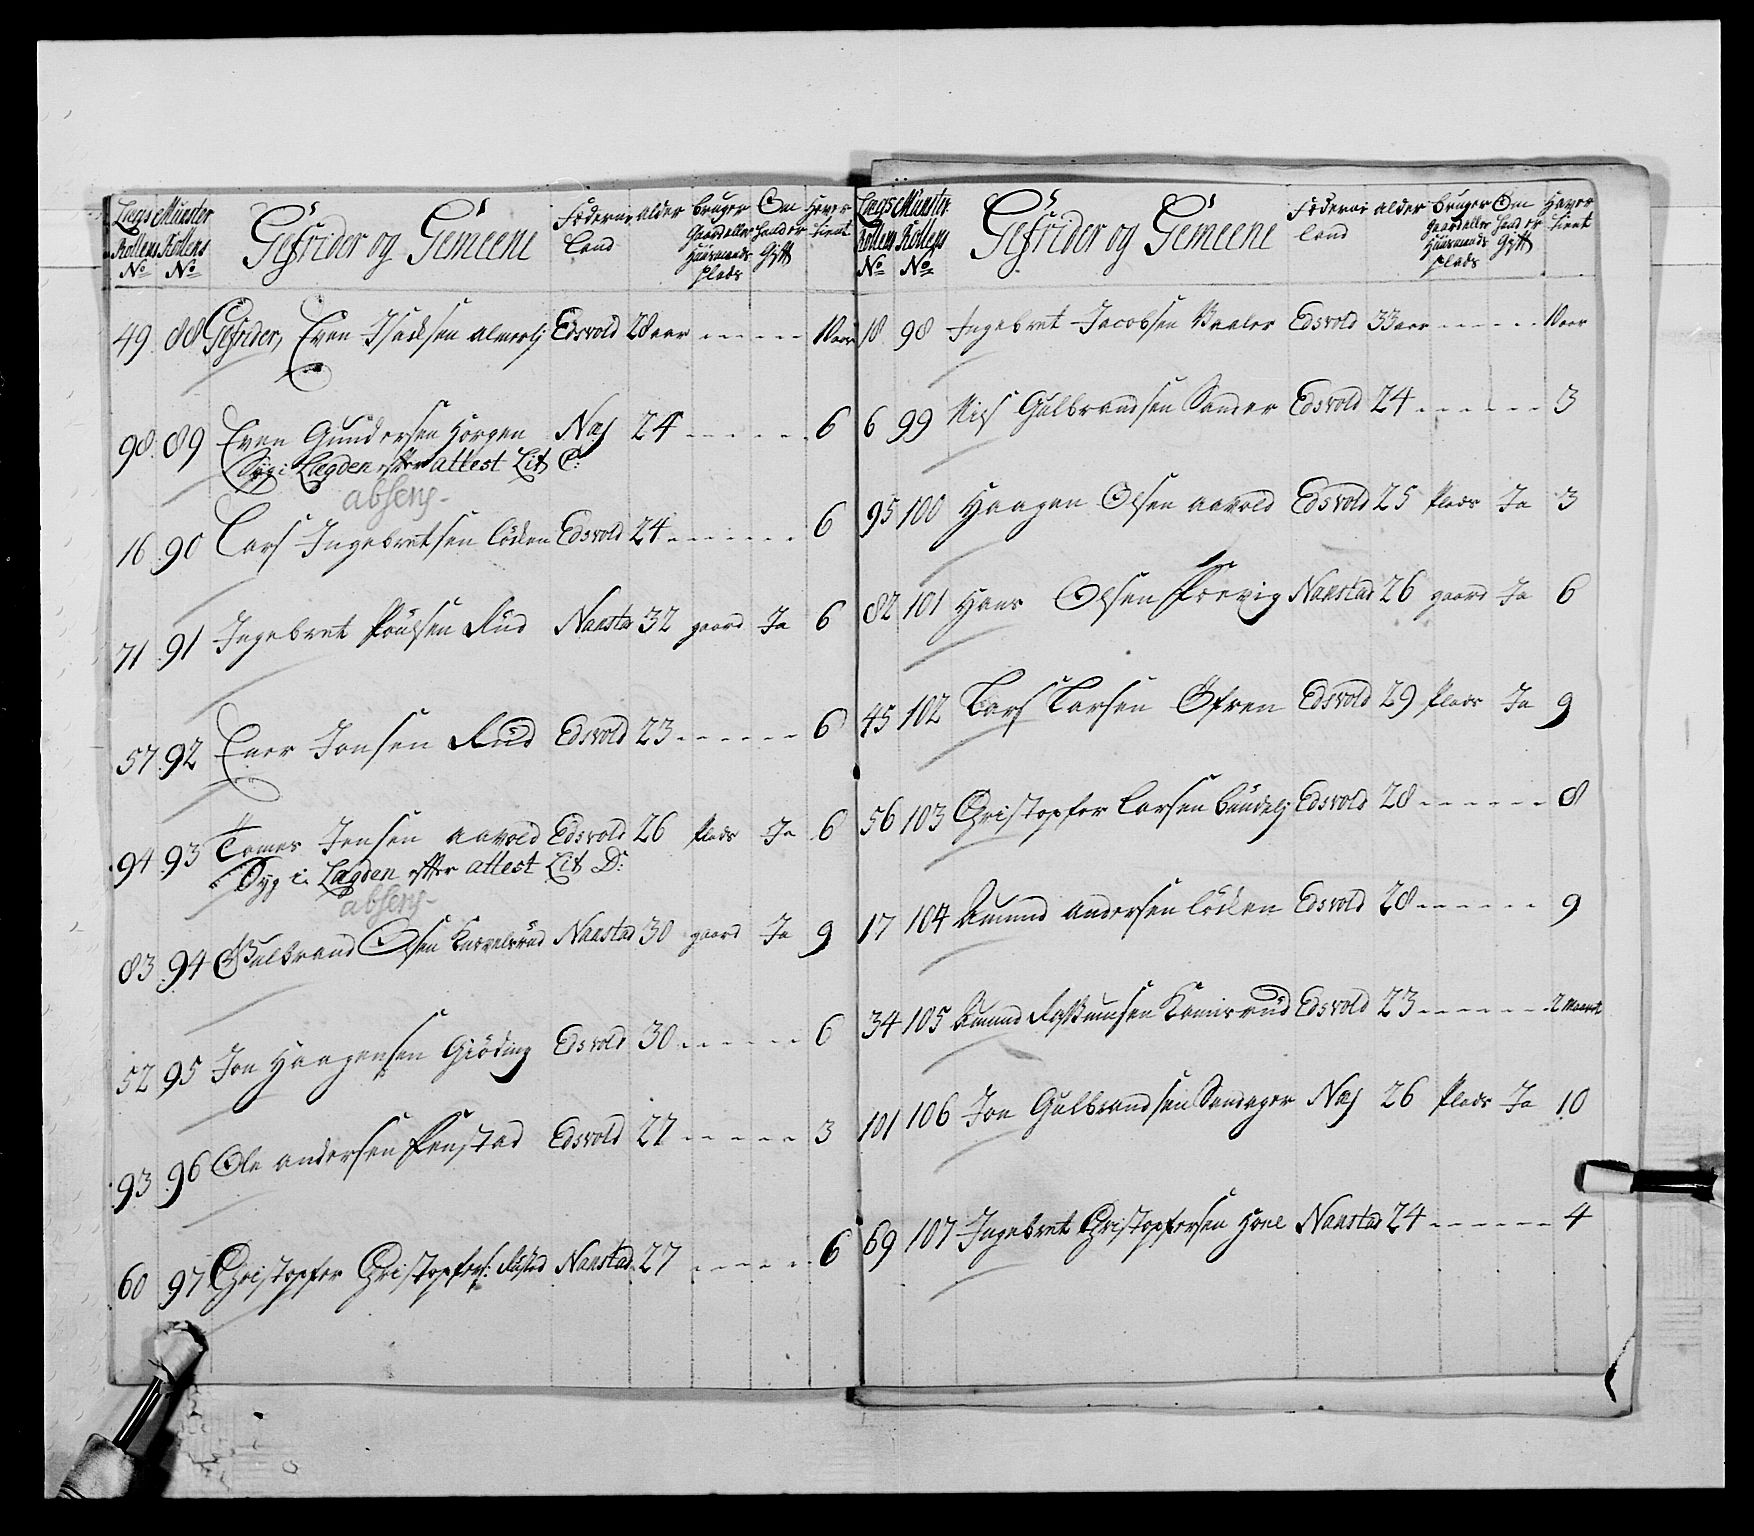 Lægs Rollens No Münster Rollens No Gefrider og Gemeene Föderne Land alder bruger Gaard eller Huusmands plads Om hand er Gift Haver tient
49 88 Gefrider, Even Isacksen almerli Edsvold 28 aar - - - - - 10 aar
98 89 Even Gundersen Horgen Næs 24 - - - - - 6
Syg i Lægden efter attest Lit C:
absens
16 90 Lars Ingebretsen Löeken Edsvold 24 - - - - - - 6
71 91 Ingebret Poulsen Rud Nanstad 32 gaard Ja 6
57 92 Ener Jonsen Rud Edsvold 23 - - - - - - 6
94 93 Tomes Jensen aavold Edsvold 26 Plads Ja 6
Syg i Lægden efter attest Lit D:
absens
83 94 Gulbrand Olsen Knevelsrud Nanstad 30 gaard Ja 9
52 95 Jon Haagensen Giöding Edsvold 30 - - - - - - 6
93 96 Ole andersen Finstad Edsvold 27 - - - - - 3
60 97 Christopfer Christopfers: Nanstad 27 - - - - - 6
Lægs Rollens No Münster Rollens No Gefrider og Gemeene Föderne land alder bruger gaard eller Huusmands plads Om hand er Gift Haver tient
18 98 Ingebret Jacobsen Vaaler Edsvold 33 aar - - - - - 10 aar
6 99 Nils Gulbrandsen Sander Edsvold 24 - - - - - - 3
95 100 Haagen Olsen aavold Edsvold 25 Plads Ja 3
82 101 Hans Olsen Nanstad 26 gaard Ja 6
45 102 Lars Larsen Öfren Edsvold 29 Plads Ja 9
56 103 Christopfer Larsen Bundeli Edsvold 28 - - - - - - 8
17 104 Amund andersen Löeken Edsvold 28 - - - - - - 9
34 105 Amund Edsvold 23 - - - - - - 2 Maanet
101 106 Jon Gulbrandsen Næs 26 Plads Ja 10
69 107 Ingebret Christopfersen Hoel Nanstad 24 - - - - - - 4